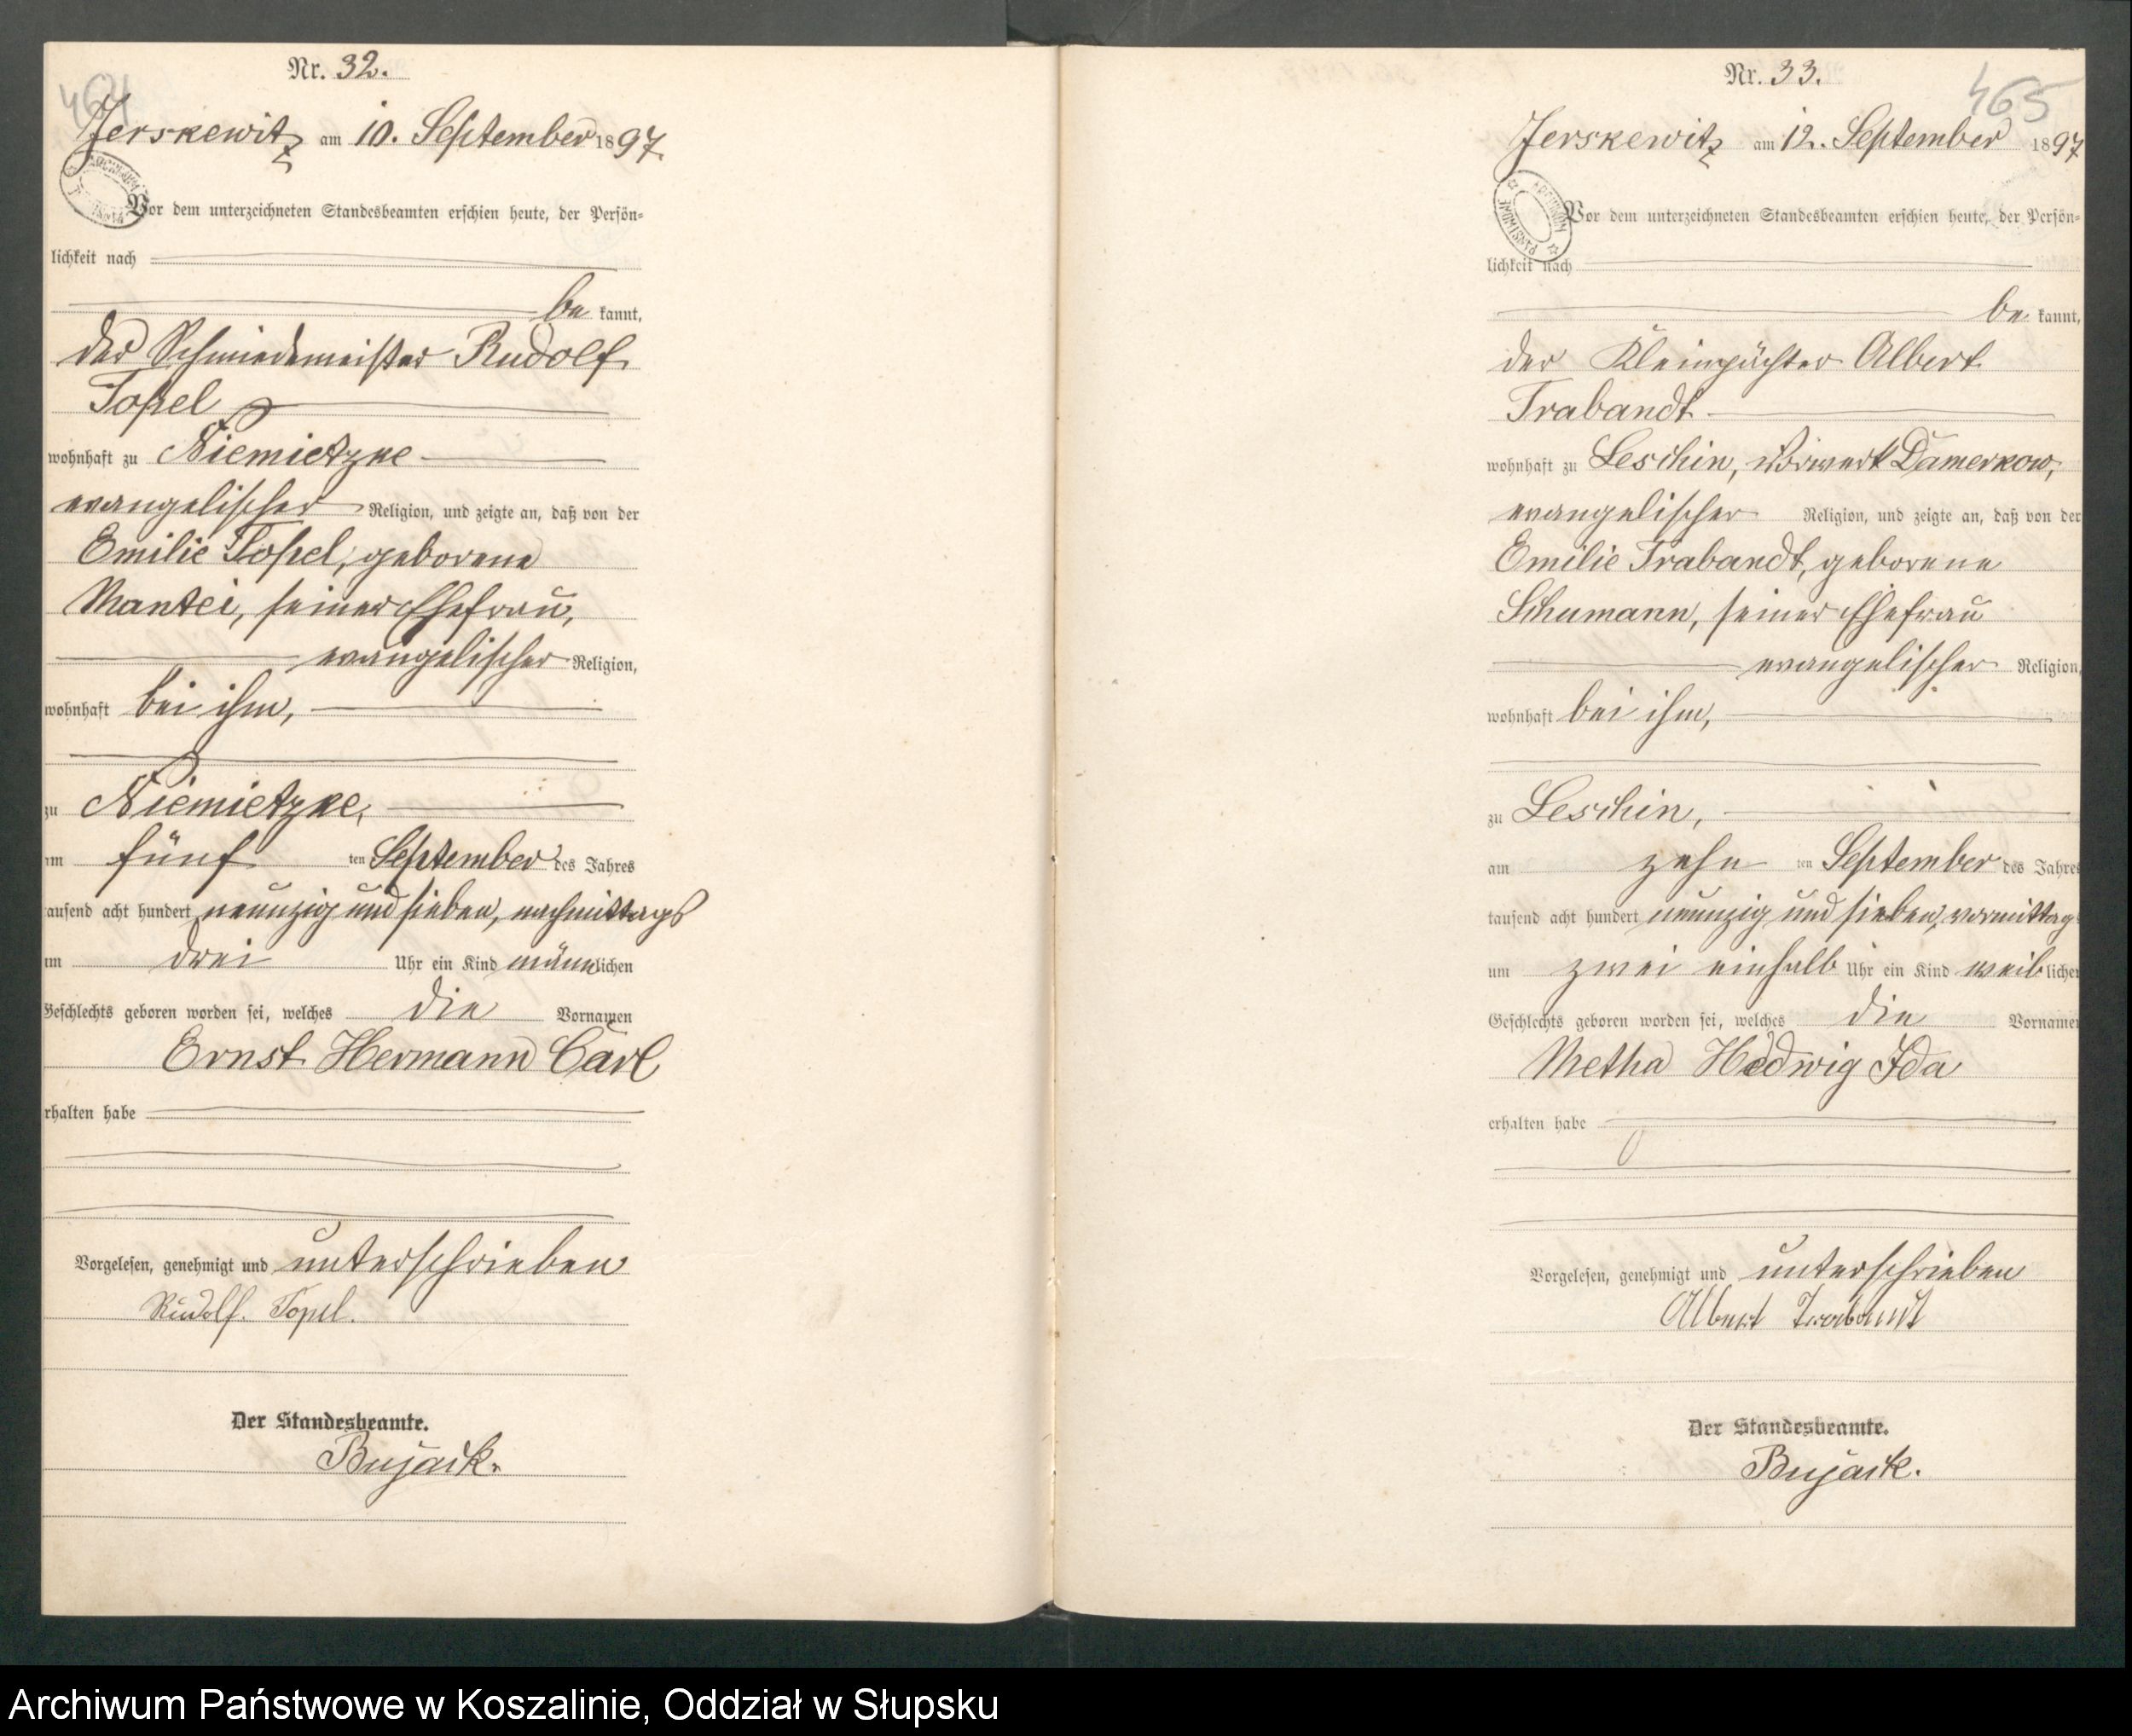 464
Nr. 32.
Jerskewitz am 10. September 1897
Vor dem unterzeichneten Standesbeamten erschien heute, der Persön-
lichkeit nach
be kannt,
der Schmiedemeister Rudolf
Topel
wohnhaft zu Niemietzke
evangelischer Religion, und zeigte an, daß von der
Emilie Topel, geborene
Mantei, seiner Ehefrau,
evangelischer Religion,
wohnhaft bei ihm,
zu Niemietzke,
am fünf ten September des Jahres
tausend acht hundert neunzig und sieben, nachmittags
um drei Uhr ein Kind männlichen
Geschlechts geboren worden sei, welches die Vornamen
Ernst Hermann Carl
erhalten habe
Vorgelesen, genehmigt und unterschrieben
Rudolf. Topel.
Der Standesbeamte.
Bujack.
465
Nr. 33.
Jerskewitz am 12. September 1897
Vor dem unterzeichneten Standesbeamten erschien heute, der Persön-
lichkeit nach
be kannt,
der Kleinpächter Albert
Trabandt
wohnhaft zu Leschin, Vorwerk Damerkow,
evangelischer Religion, und zeigte an, daß von der
Emilie Trabandt, geborene
Schumann, seiner Ehefrau
evangelischer Religion,
wohnhaft bei ihm,
zu Leschin,
am zehn ten September des Jahres
tausend acht hundert neunzig und sieben, vormittags
um zwei einhalb Uhr ein Kind weiblichen
Geschlechts geboren worden sei, welches die Vornamen
Metha Hedwig Ida
erhalten habe
Vorgelesen, genehmigt und unterschrieben
Albert Trabandt
Der Standesbeamte.
Bujack.
Archiwum Państwowe w Koszalinie, Oddział w Słupsku